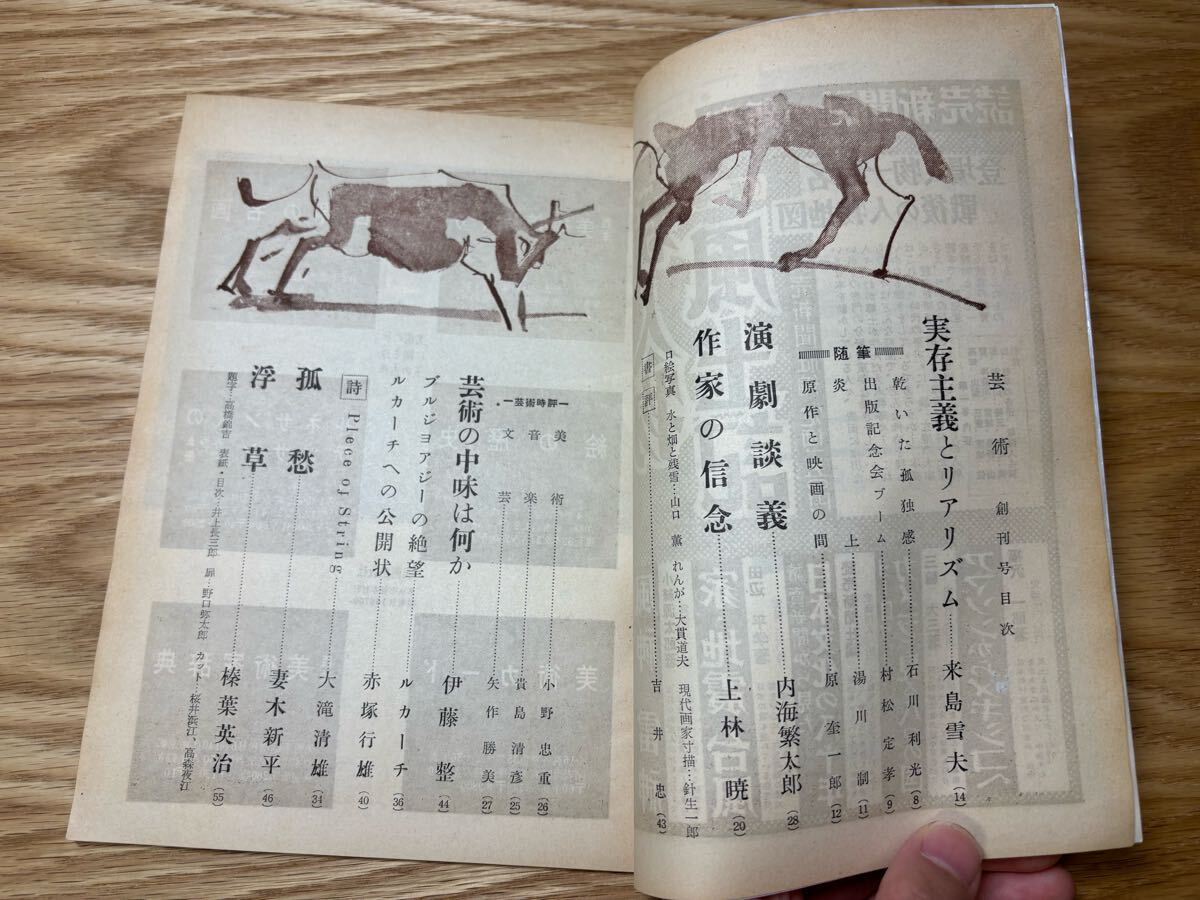 芸術 創刊号目次
実存主義とリアリズム……来島雪夫(14)
随筆
乾いた孤独感……石川利光(8)
出版記念会ブーム……村松定孝(9)
炎上……湯川制(11)
原作と映画の間……原奎一郎(12)
演劇談義……内海繁太郎(28)
作家の信念……上林暁(20)
口絵写真 水と畑と残雪…山口薫 れんが…大貫道夫 現代画家寸描…針生一郎
書評……吉井忠(43)
―芸術時評―
美術……小野忠重(26)
音楽……貴島清彦(25)
文芸……矢作勝美(27)
芸術の中味は何か……伊藤整(44)
ブルジョアジーの絶望
ルカーチへの公開状……ルカーチ(36)
詩 Piece of String……赤塚行雄(40)
孤愁……大滝清雄(34)
妻木新平(46)
浮草……榛葉英治(55)
題字…高橋錦吉 表紙・目次…井上長三郎 扉…野口弥太郎 カット…桜井浜江、高森夜江